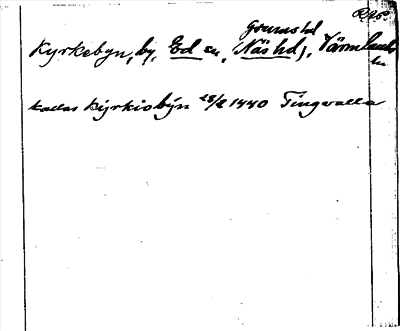 Grums hd
Kyrkebyn, by, Ed sn, Näs hd, Värmlands
ln
kallas Kyrkiobyn 28/2 1440 Tingvalla